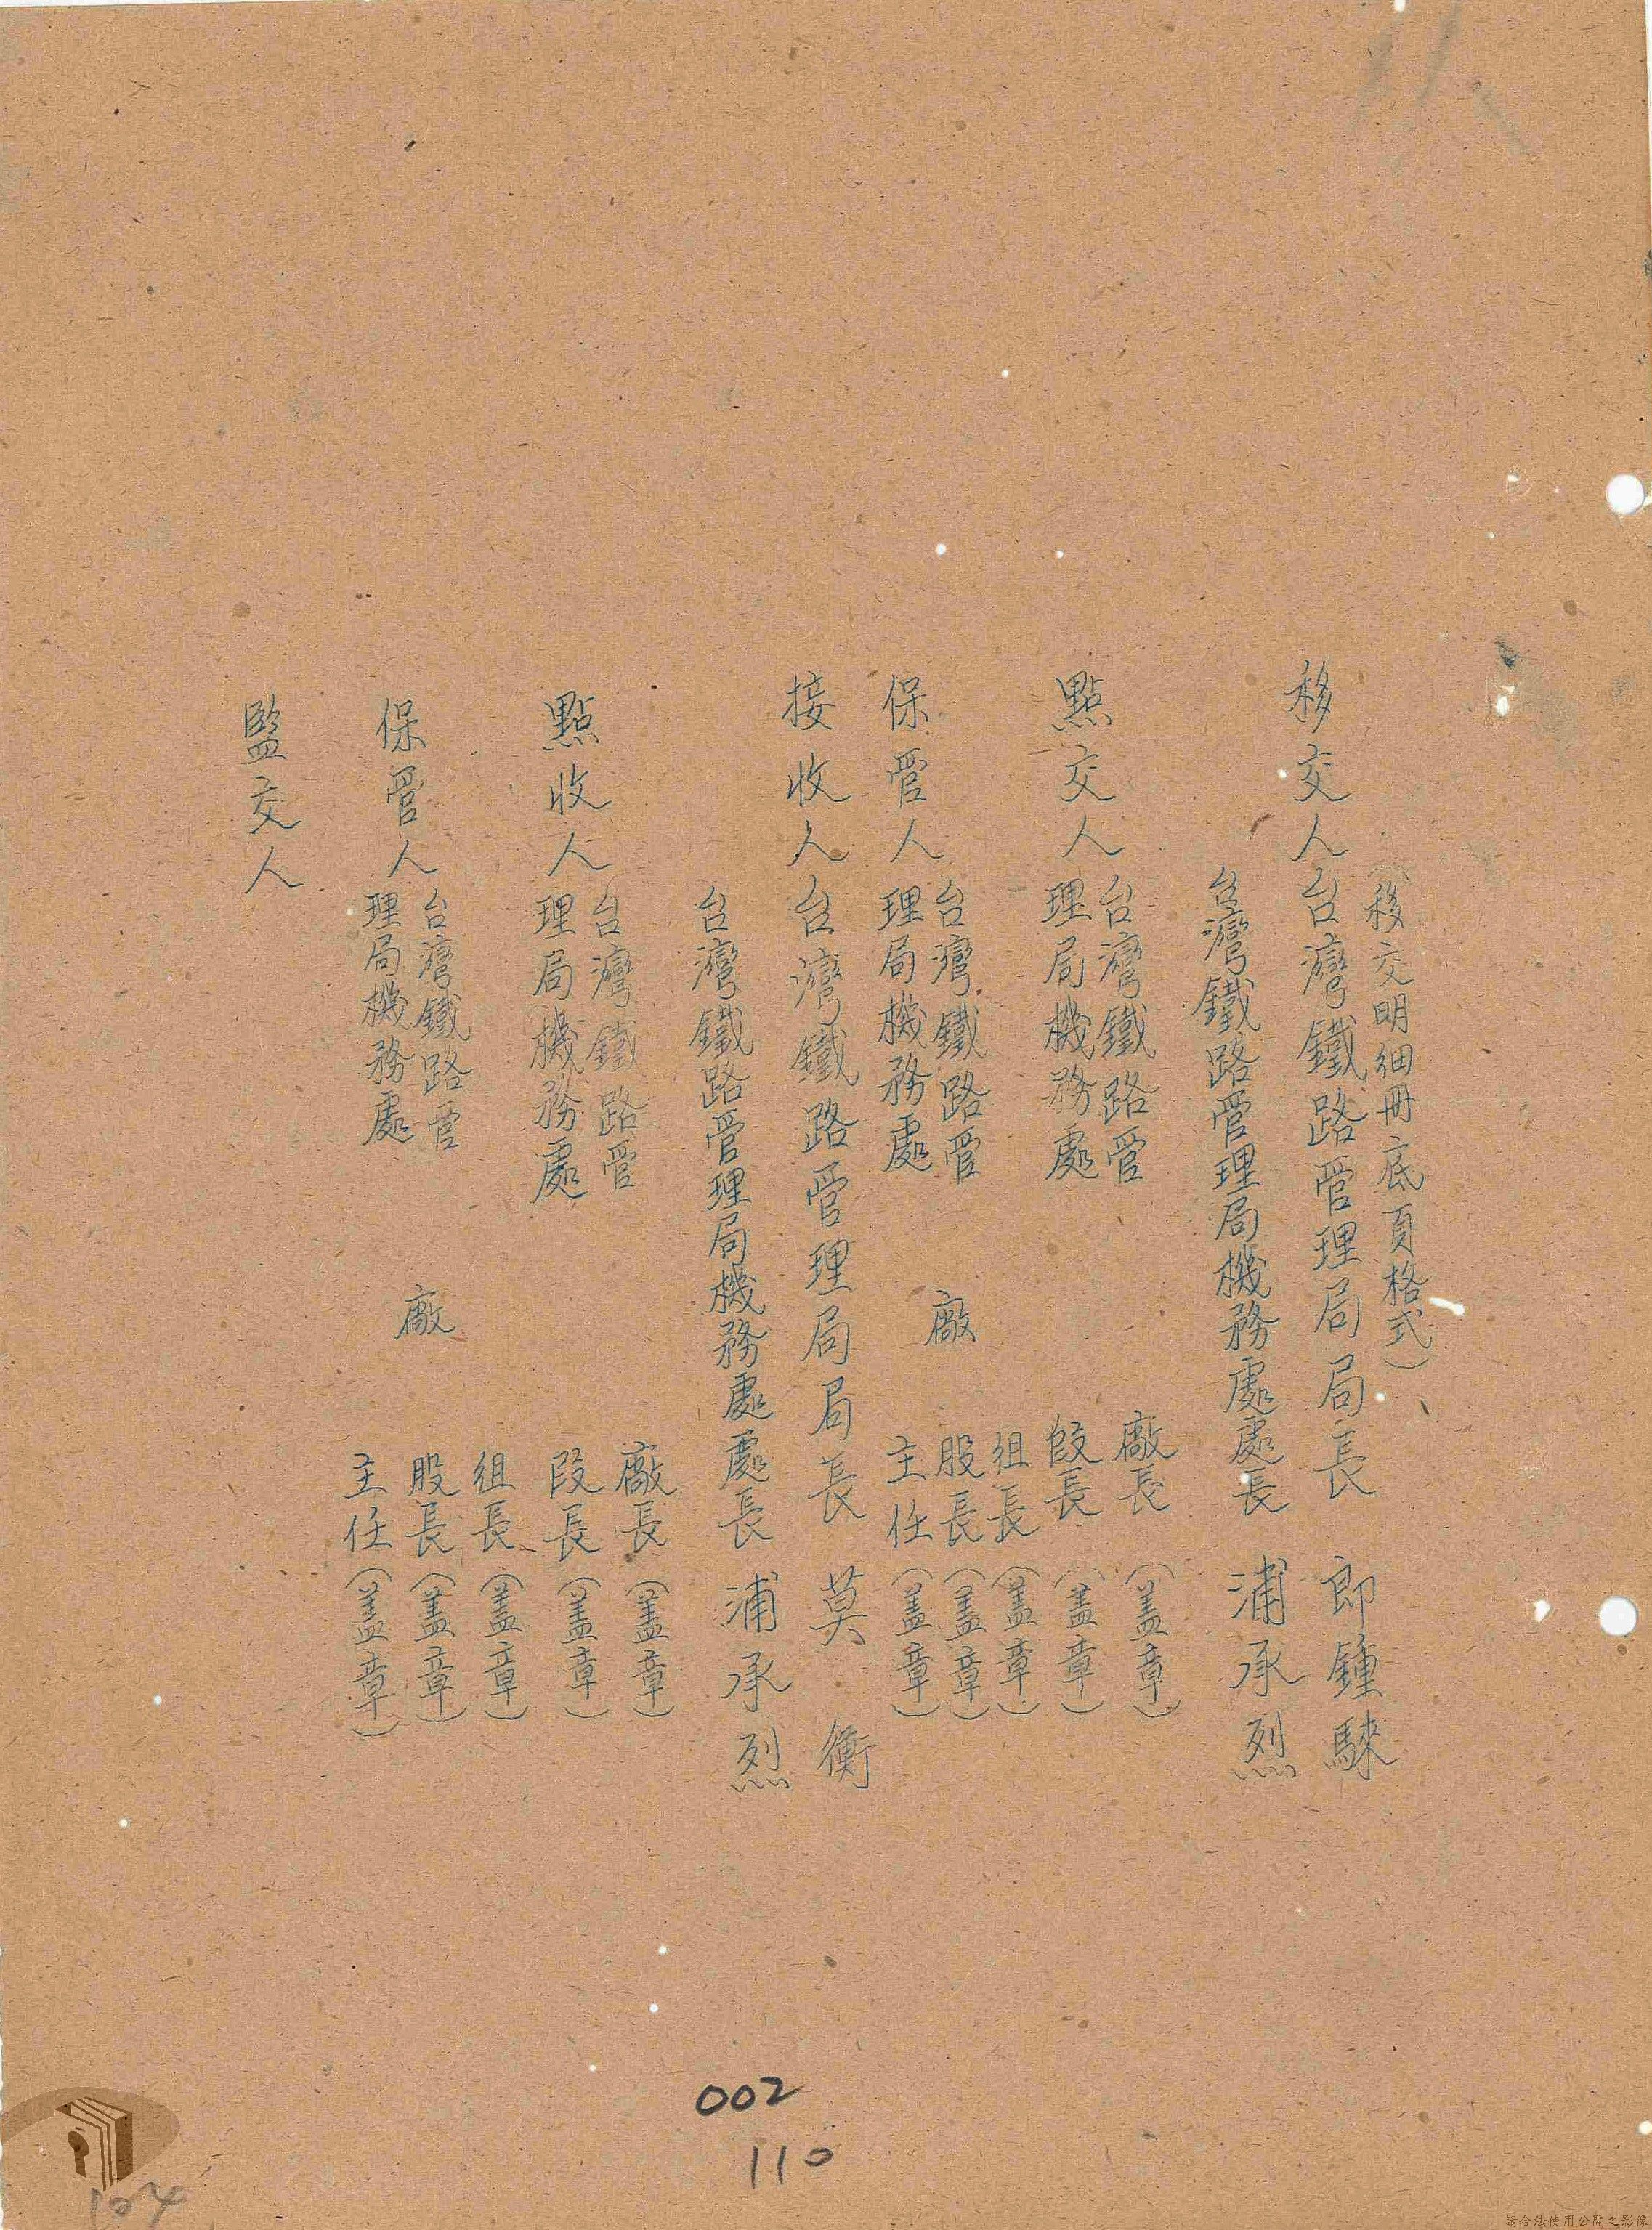 （移交明細冊底頁格式）
移交人台灣鐵路管理局局長 郎鍾騋
台灣鐵路管理局機務處處長 浦承烈
點交人
台灣鐵路管
理局機務處
廠長（盖章）
段長（盖章）
保管人
台灣鐵路管
理局機務處
廠
組長（盖章）
股長（盖章）
主任（盖章）
接收人台灣鐵路管理局局長 莫衡
台灣鐵路管理局機務處處長 浦承烈
點收人
台灣鐵路管
理局機務處
廠長（盖章）
段長（盖章）
保管人
台灣鐵路管
理局機務處
廠
組長（盖章）
股長（盖章）
主任（盖章）
監交人
002
110
104
請合法使用公開之影像